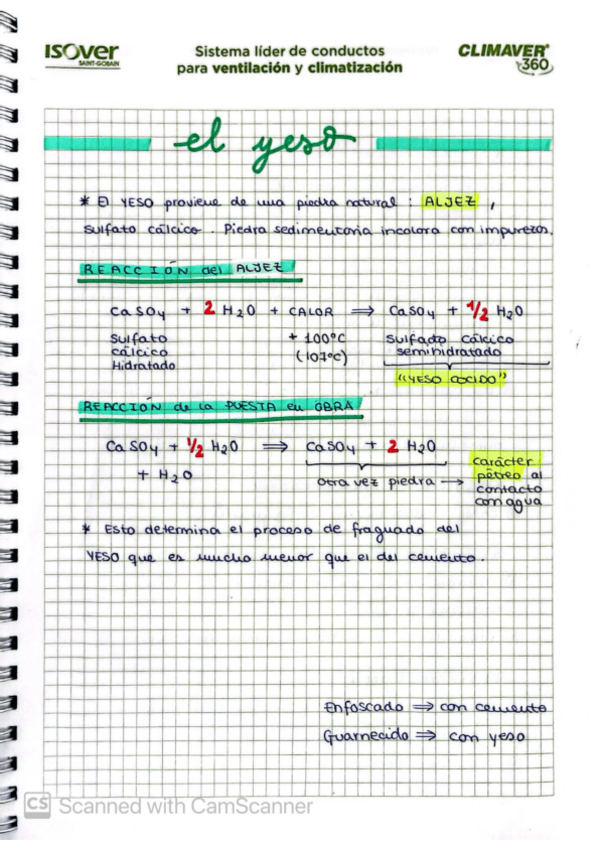 ISOVER
SAINT-GOBAIN
Sistema líder de conductos
para ventilación y climatización
CLIMAVER®
360
el yeso
* El YESO proviene de una piedra natural : ALJEZ ,
sulfato cálcico . Piedra sedimentaria incolora con impurezas.
REACCIÓN del ALJEZ
CaSO4 + 2 H2O + CALOR ⟹ CaSO4 + 1/2 H2O
Sulfato
cálcico
Hidratado
+ 100ºC
(107ºC)
Sulfado cálcico
semihidratado
"YESO COCIDO"
REACCIÓN de la PUESTA en OBRA
CaSO4 + 1/2 H2O ⟹ CaSO4 + 2 H2O
+ H2O
otra vez piedra →
carácter
pétreo al
contacto
con agua
* Esto determina el proceso de fraguado del
YESO que es mucho menor que el del cemento.
Enfoscado ⟹ con cemento
Guarnecido ⟹ con yeso
CS Scanned with CamScanner